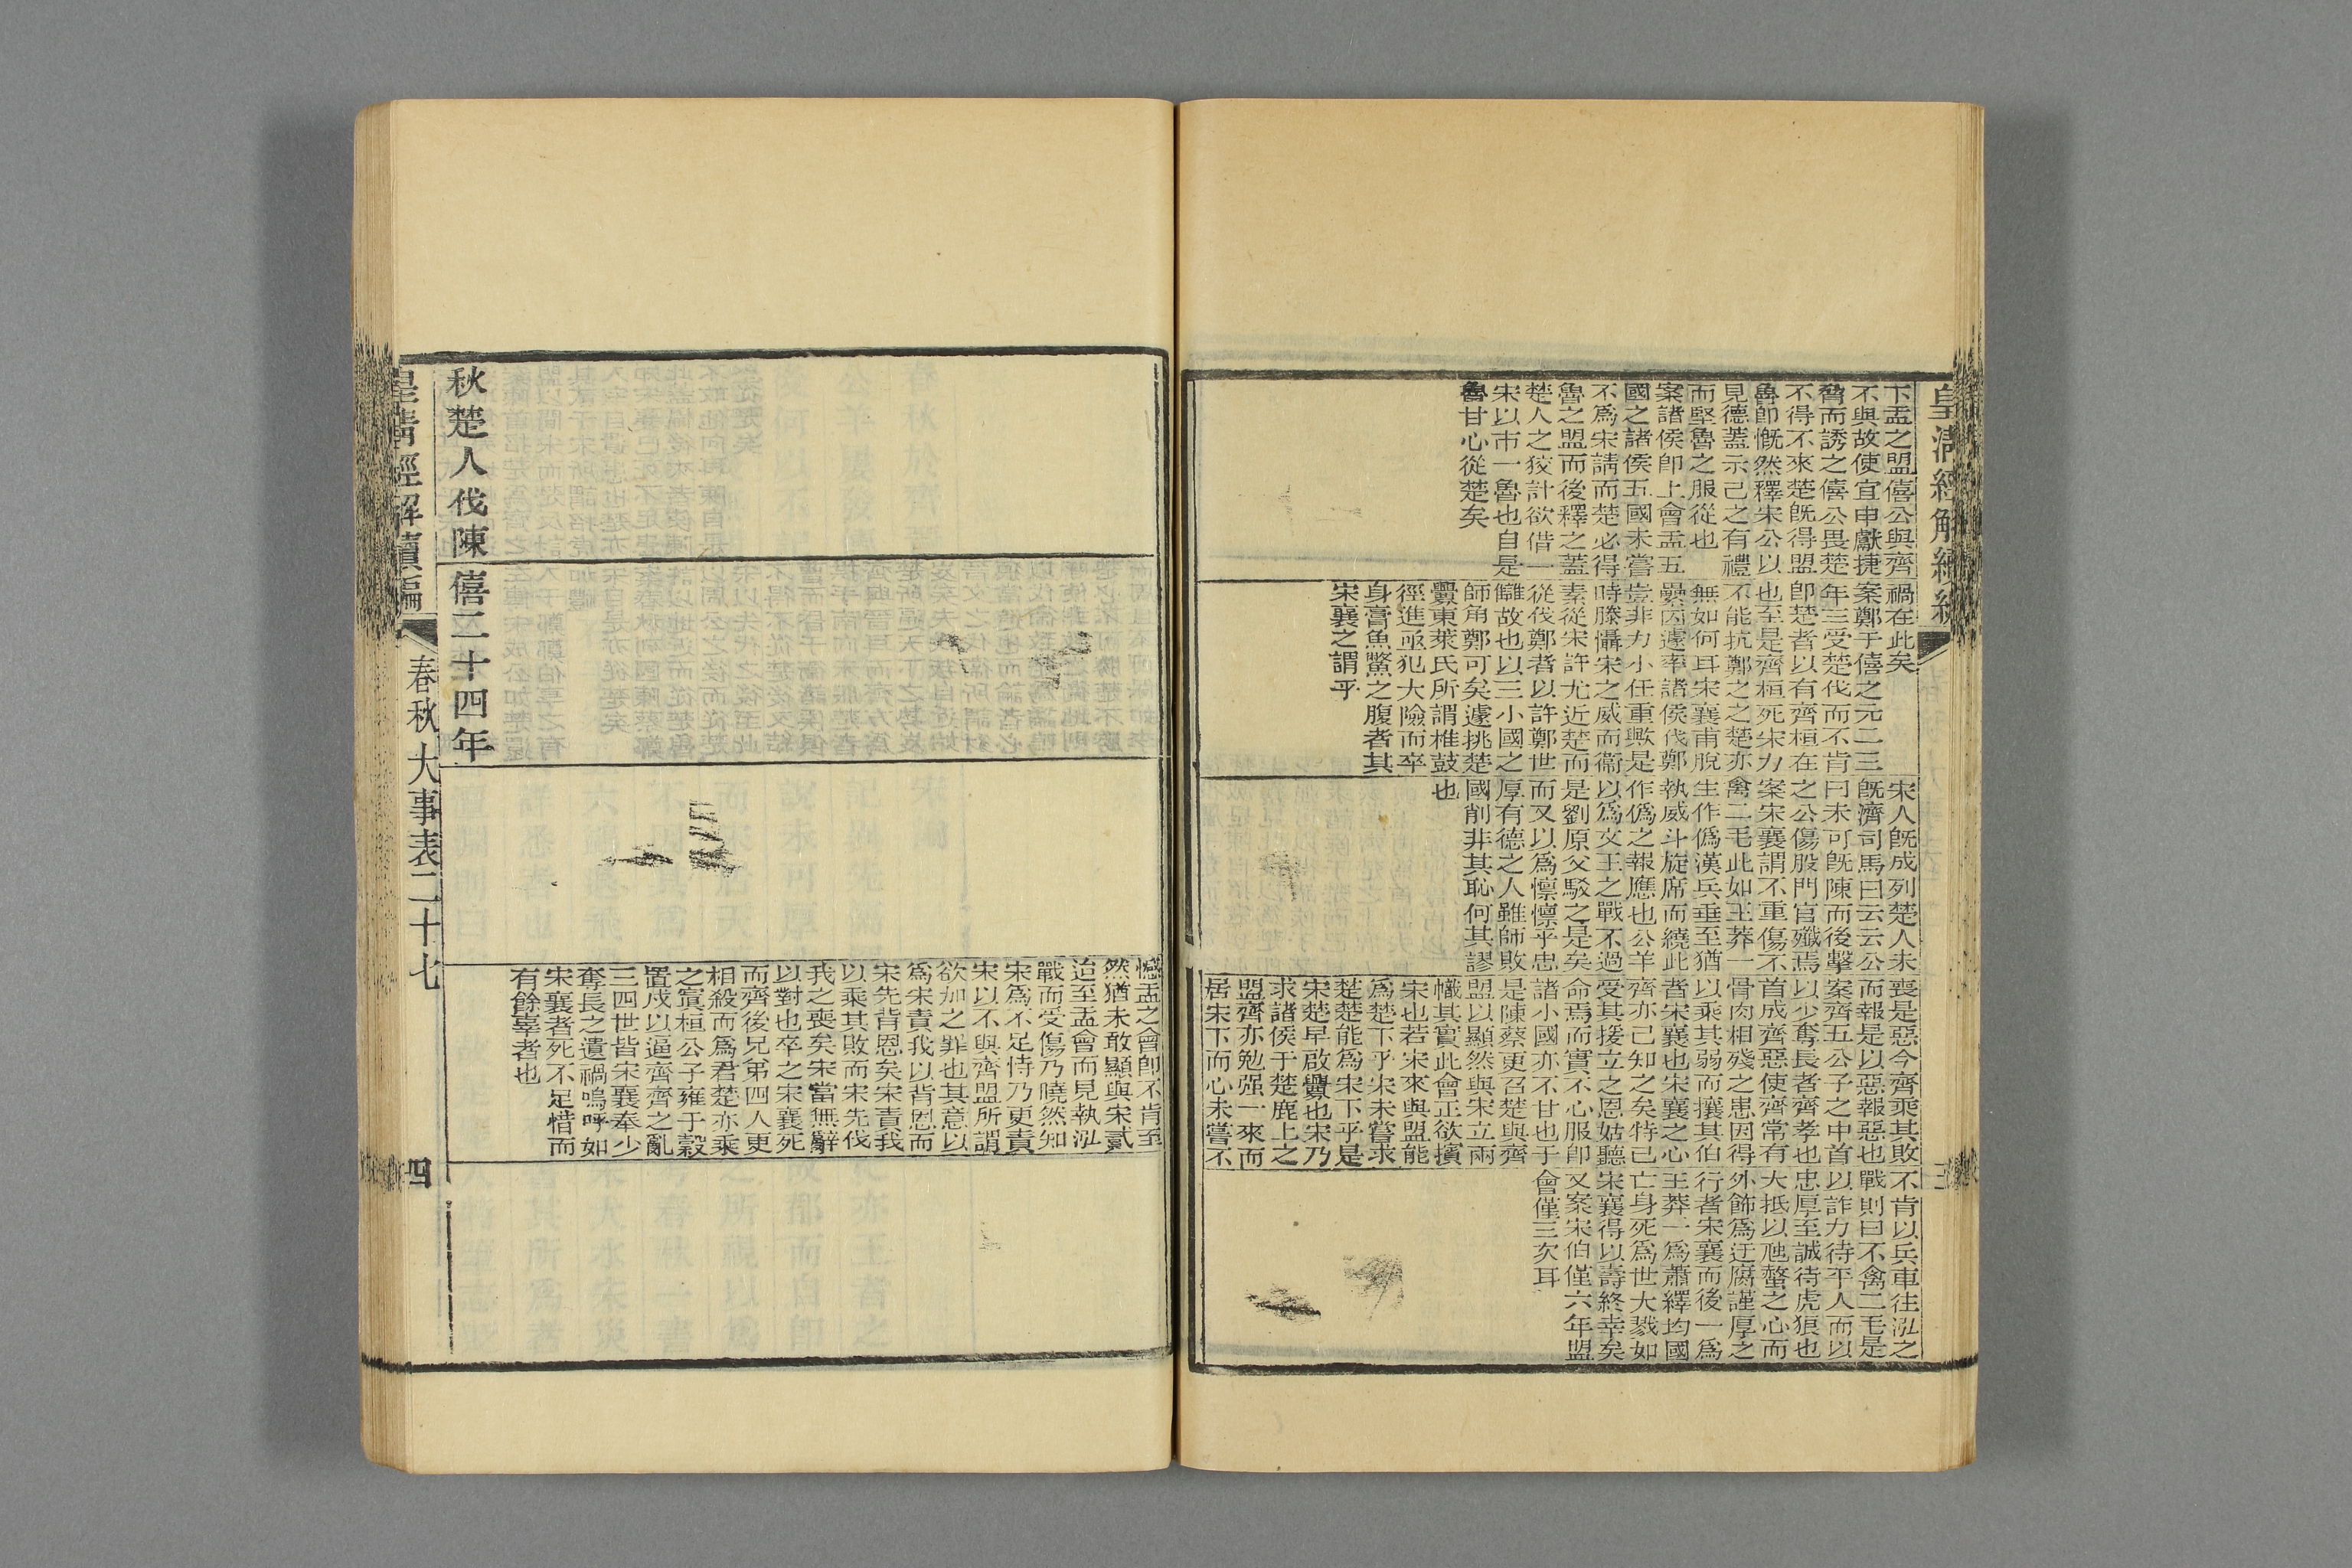 皇清經解續
下盂之盟僖公與齊
不與故使宜申獻捷
脅而誘之僖公畏楚
不得不來楚既得盟
魯卽慨然釋宋公以
見德蓋示己之有禮
而堅魯之服從也
案諸侯卽上會盂五
國之諸侯五國未嘗
不爲宋請而楚必得
魯之盟而後釋之蓋
楚人之狡計欲借一
宋以市一魯也自是
魯甘心從楚矣
禍在此矣
案鄭于僖之元二三
年三受楚伐而不肯
卽楚者以有齊桓在
也至是齊桓死宋力
不能抗鄭之之楚亦
無如何耳宋襄甫脫
纍囚遽率諸侯伐鄭
豈非力小任重歟是
時滕懾宋之威而衞
素從宋許尤近楚而
從伐鄭者以許鄭世
讎故也以三小國之
師角鄭可矣遽挑楚
釁東萊氏所謂椎鼓
徑進亟犯大險而卒
身膏魚鱉之腹者其
宋襄之謂乎
宋人既成列楚人未
既濟司馬曰云云公
曰未可既陳而後擊
之公傷股門官殲焉
案宋襄謂不重傷不
禽二毛此如王莽一
生作僞漢兵垂至猶
執威斗旋席而繞此
作僞之報應也公羊
以爲文王之戰不過
是劉原父駁之是矣
而又以爲懍懍乎忠
厚有德之人雖師敗
國削非其恥何其謬
也
喪是惡今齊乘其敗
而報是以惡報惡也
案齊五公子之中首
以少奪長者齊孝也
首成齊惡使齊常有
骨肉相殘之患因得
以乘其弱而攘其伯
者宋襄也宋襄之心
齊亦己知之矣特已
受其援立之恩姑聽
命焉而實不心服卽
諸小國亦不甘也于
是陳蔡更召楚與齊
盟以顯然與宋立兩
幟其實此會正欲擯
宋也若宋來與盟能
爲楚下乎宋未嘗求
楚楚能爲宋下乎是
宋楚早啟釁也宋乃
求諸侯于楚鹿上之
盟齊亦勉强一來而
居宋下而心未嘗不
不肯以兵車往泓之
戰則曰不禽二毛是
以詐力待平人而以
忠厚至誠待虎狼也
大抵以虺螫之心而
外飾爲迂腐謹厚之
行者宋襄而後一爲
王莽一爲蕭繹均國
亡身死爲世大戮如
宋襄得以壽終幸矣
又案宋伯僅六年盟
會僅三次耳
憾盂之會卽不肯至
然猶未敢顯與宋貳
迨至盂會而見執泓
戰而受傷乃曉然知
宋爲不足恃乃更責
宋以不與齊盟所謂
欲加之罪也其意以
爲宋責我以背恩而
宋先背恩矣宋責我
以乘其敗而宋先伐
我之喪矣宋當無辭
以對也卒之宋襄死
而齊後兄弟四人更
相殺而爲君楚亦乘
之寘桓公子雍于穀
置戍以逼齊齊之亂
三四世皆宋襄奉少
奪長之遺禍嗚呼如
宋襄者死不足惜而
有餘辜者也
秋楚人伐陳
僖二十四年
皇清經解續編
春秋大事表二十七
四